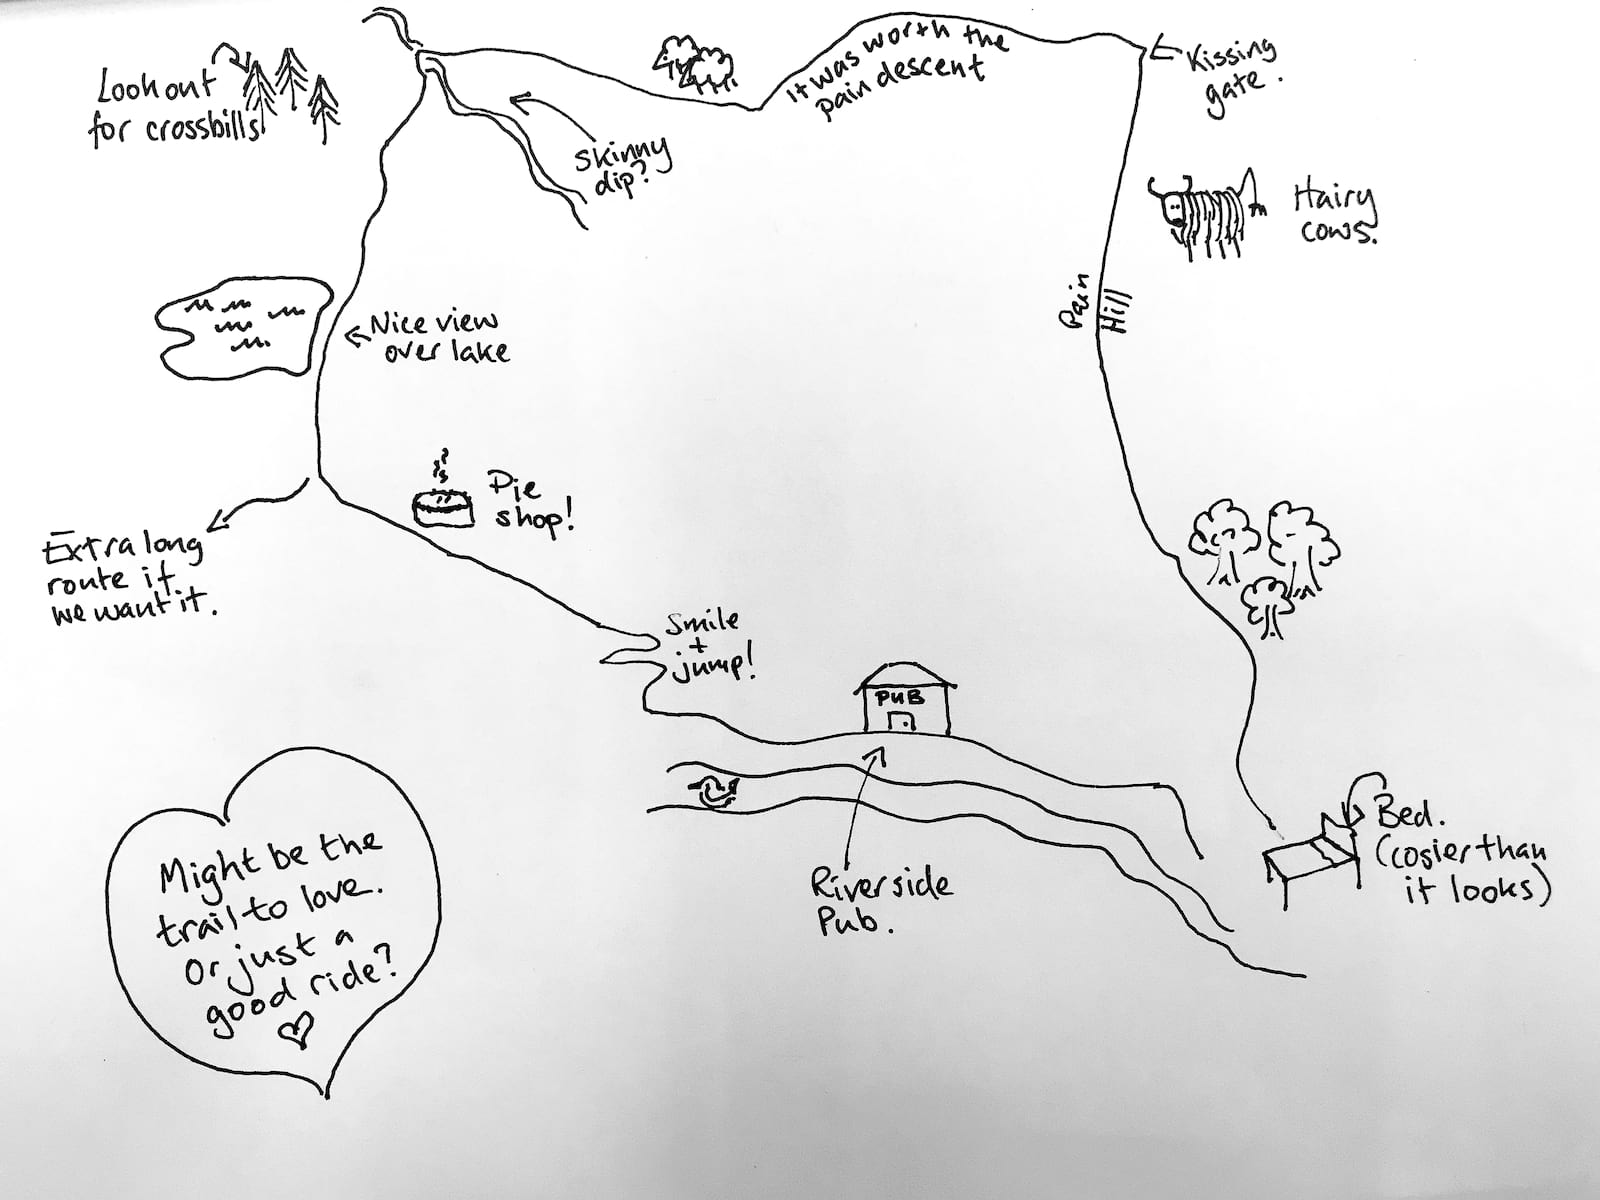 Look out
for crossbills
skinny
dip?
it was worth the
pain descent
Kissing
gate.
Hairy
cows.
Pain
Hill
Nice view
over lake
Pie
shop!
Extra long
route if
we want it.
Smile
+
jump!
PUB
Riverside
Pub.
Bed.
(cosier than
it looks)
Might be the
trail to love.
Or just a
good ride?